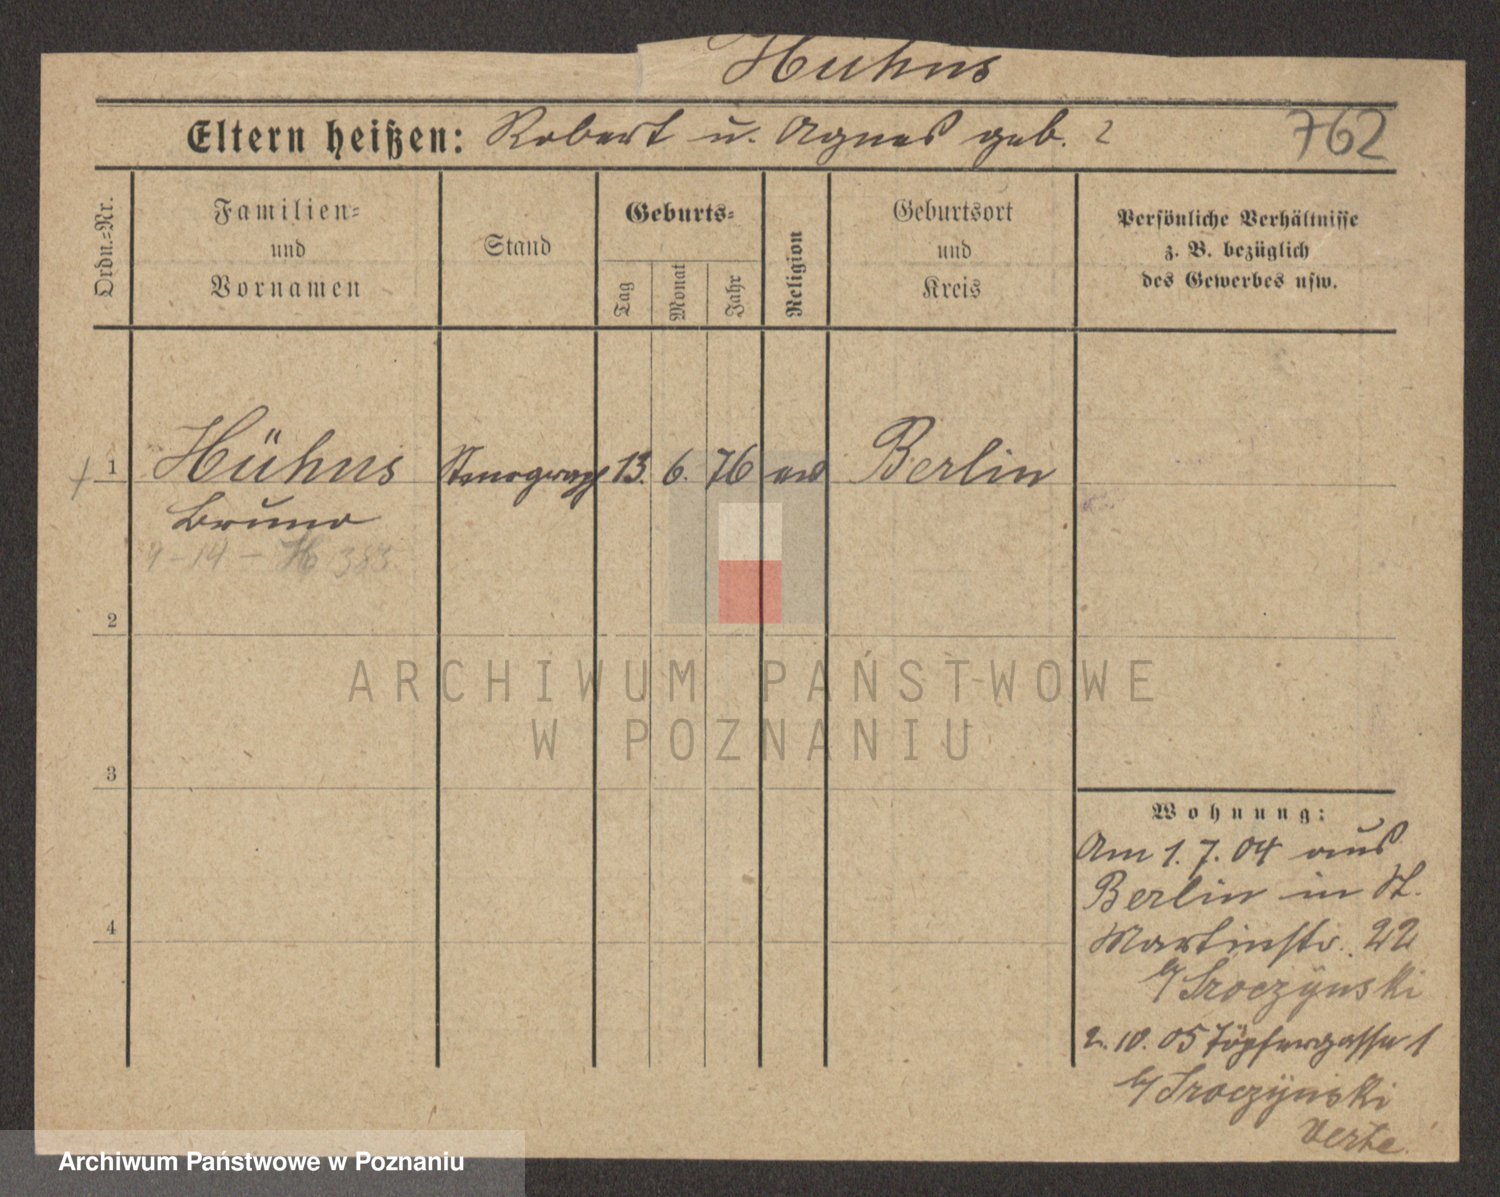 Hühns
Eltern heißen: Robert u. Agnes geb. ?
762
Ordn.-Nr.
Familien-
und
Vornamen
Stand
Geburts-
Tag
Monat
Jahr
Religion
Geburtsort
und
Kreis
Persönliche Verhältnisse
z. B. bezüglich
des Gewerbes usw.
1 Hühns Stenograph 13. 6. 76 Berlin
Bruno
9-14 - H 383
2
ARCHIWUM PAŃSTWOWE
W POZNANIU
3
4
Wohnung:
Am 1. 7. 04 aus
Berlin in St.
Martinstr. 22
b/ Sroczynski
2. 10. 05 Töpfergasse 1
b/ Sroczynski
Archiwum Państwowe w Poznaniu